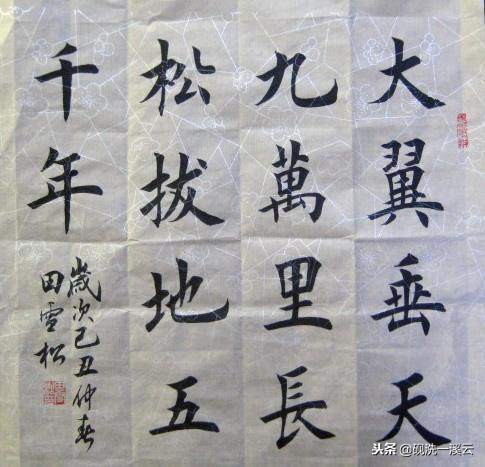 大翼垂天
九萬里長
松拔地五
千年
歲次己丑仲春
田雪松
头条 @砚洗一溪云